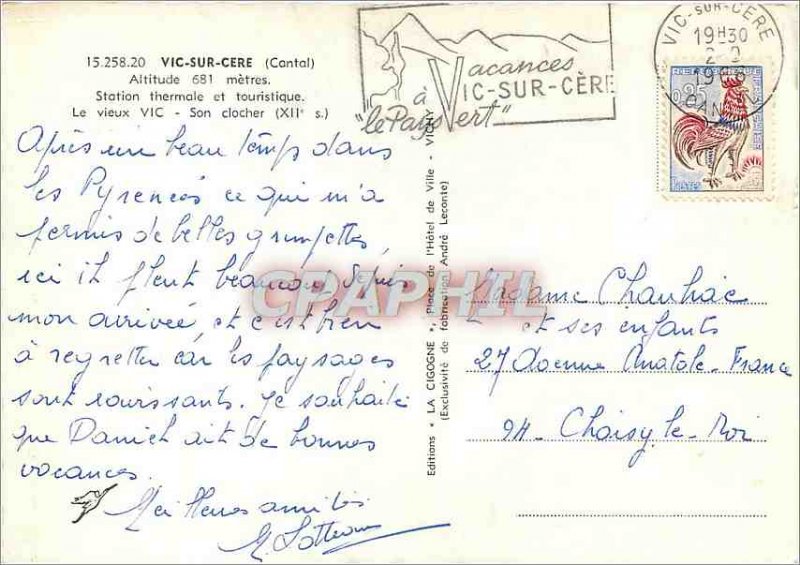 15.258.20 VIC-SUR-CERE (Cantal)
Altitude 681 mètres.
Station thermale et touristique.
Le vieux VIC - Son clocher (XIIe s.)
Vacances
à VIC-SUR-CÈRE
"le Pays Vert"
VIC-SUR-CERE
19H30
0,25
Après un beau temps dans
les Pyrenees ce qui m'a
permis de belles grimpettes,
ici il pleut beaucoup depuis
mon arrivée, et c'est bien
à regretter car les paysages
sont
Je souhaite
que Daniel ait de bonnes
vacances.
Meilleures amitiés
Editions " LA CIGOGNE ", Place de l'Hôtel de Ville - VICHY
(Exclusivité de fabrication André Leconte)
CPAPHIL
Madame Chauliac
et ses enfants
27 Avenue Anatole-France
94 - Choisy-le-Roi